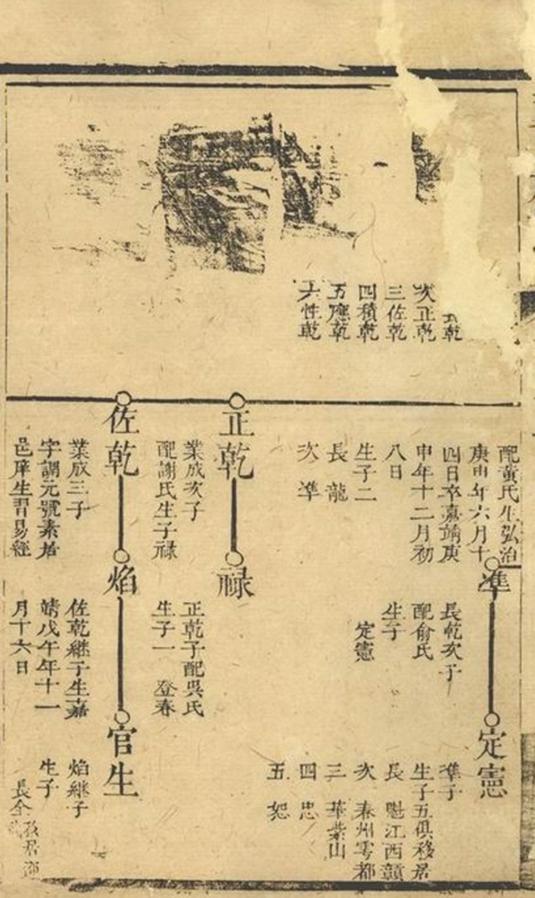 乾
次正乾
三佐乾
四積乾
五應乾
六性乾
配黃氏生弘治
庚申年六月十
四日卒嘉靖庚
申年十二月初
八日
生子二
長龍
次準
準
長乾次子
配俞氏
生子
定憲
定憲
準子
生子五俱移居
長 魁江西贛
次 春州雩都
三 華葉山
四 忠
五 恕
正乾
業成次子
配謝氏生子祿
祿
正乾子配吳氏
生子一 登春
佐乾
業成三子
字調元號素居
邑庠生習易經
焰
佐乾繼子生嘉
靖戊午年十一
月十六日
官生
焰繼子
生子
長全